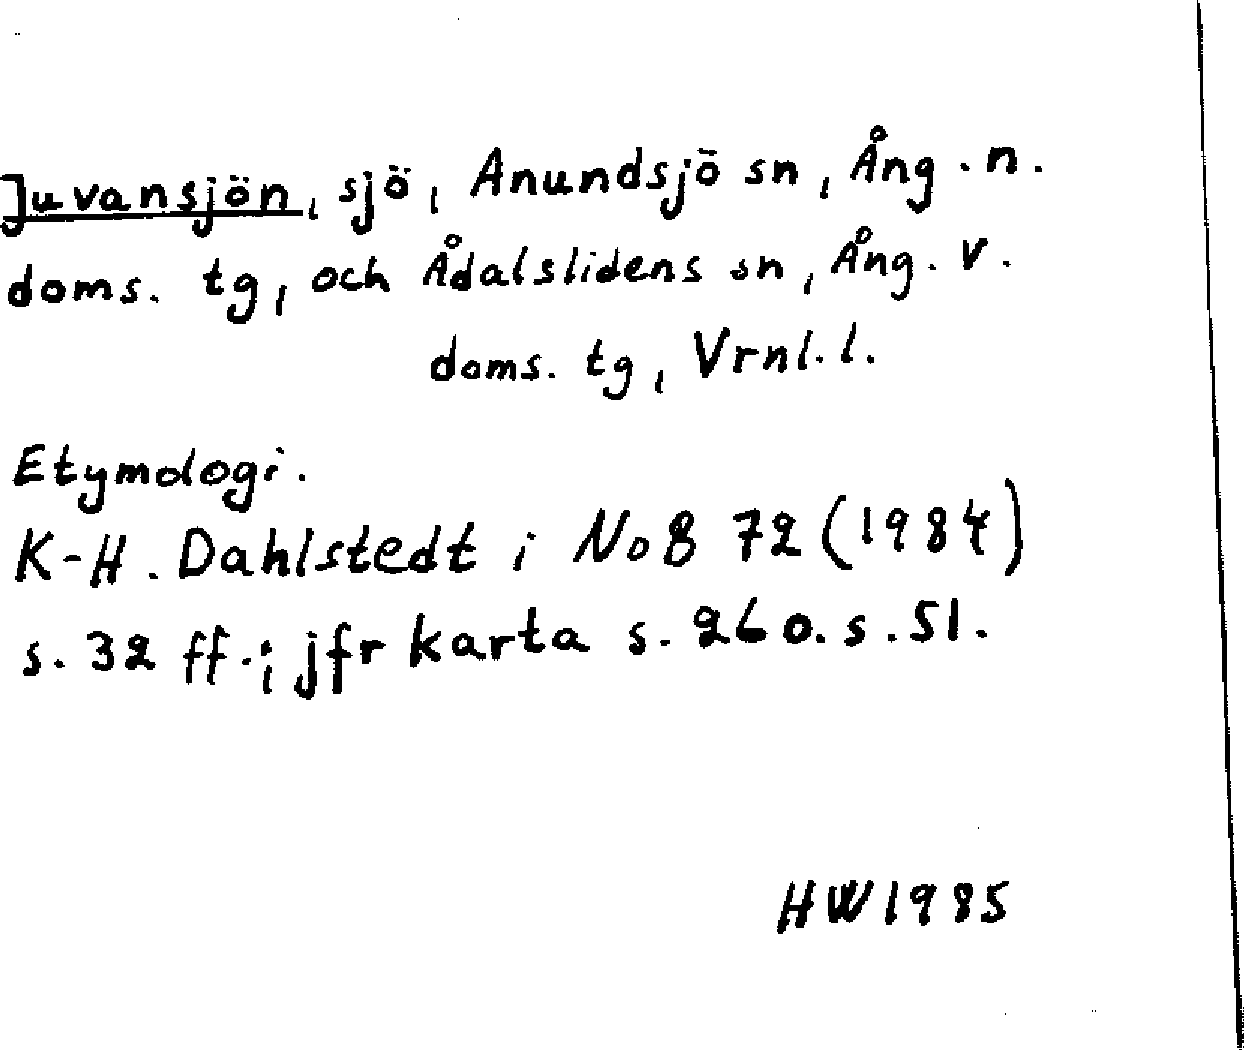 Juvansjön, sjö, Anundsjö sn, Ång. n.
doms. tg, och Ådalslidens sn, Ång. v.
doms. tg, Vrnl. l.
Etymologi.
K-H. Dahlstedt i NoB 72 (1984)
s. 32 ff.; jfr karta s. 26 o. s. 51.
HW 1985